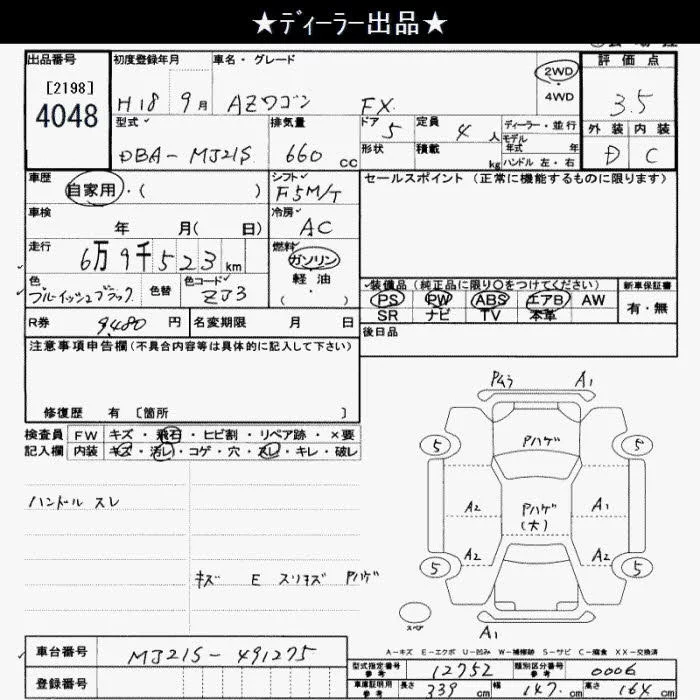 ★ディーラー出品★
出品番号 初度登録年月 車名・グレード 評価点
[2198]
4048
H18 9月 AZワゴン FX 2WD 4WD 3.5
型式 排気量 ドア 5 定員 4人 ディーラー・並行 外装 内装
モデル年式 年
DBA-MJ21S 660cc 形状 積載 kg ハンドル 左・右 D C
車歴 自家用・( ) シフト F5M/T セールスポイント (正常に機能するものに限ります)
車検 年 月( 日) 冷房 AC
走行 6万9千523km 燃料 ガソリン
軽油
( ・ )
色 ブルーイッシュブラック 色替 色コード ZJ3 装備品(純正品に限り○をつけてください) 新車保証書
PS PW ABS エアB AW 有・無
SR ナビ TV 本革
R券 9,480円 名変期限 月 日 後日品
注意事項申告欄(不具合内容等は具体的に記入して下さい)
修復歴 有 [箇所 ]
検査員 FW キズ・飛石・ヒビ割・リペア跡・×要
記入欄 内装 キズ・汚レ・コゲ・穴・スレ・キレ・破レ
Pムラ A1
Pハゲ
5 5
ハンドル スレ
A2 Pハゲ(大) A1
A2 A2
5 5
キズ E スリキズ Pハゲ
スペア
A1
A-キズ E-エクボ U-凹み W-補修跡 S-サビ C-腐食 XX-交換済
車台番号 MJ21S-491275
型式指定番号 参考 12752 類別区分番号 参考 0006
登録番号
車庫証明用 参考 長さ 339cm 幅 147cm 高さ 164cm